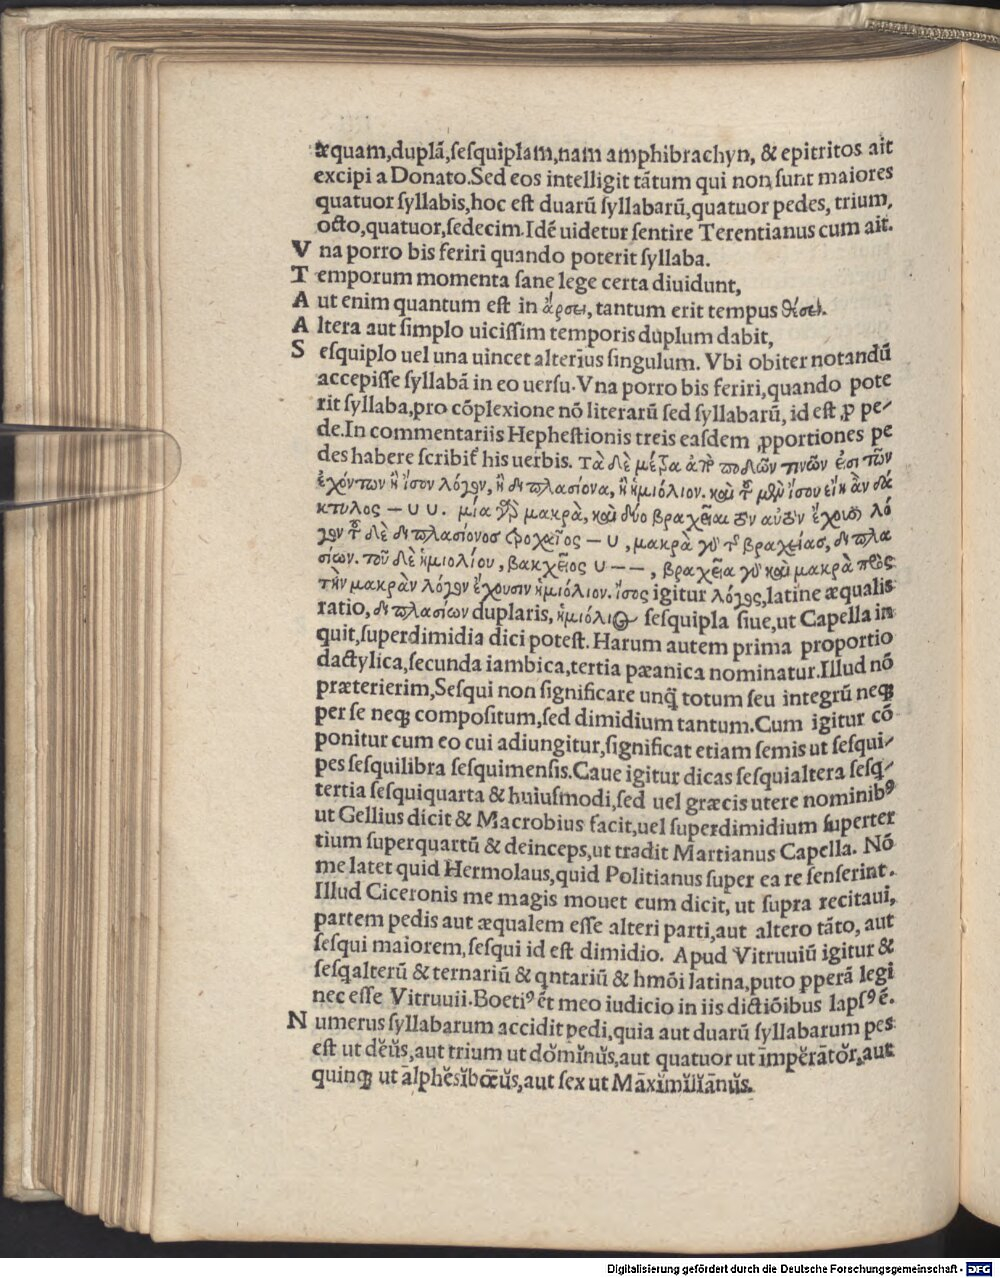 æquam,duplā,ſeſquiplam,nam amphibrachyn, & epitritos ait
excipi a Donato.Sed eos intelligit tātum qui non ſunt maiores
quatuor ſyllabis,hoc eſt duarū ſyllabarū,quatuor pedes, trium,
octo,quatuor,ſedecim.Idē uidetur ſentire Terentianus cum ait.
V na porro bis feriri quando poterit ſyllaba.
T emporum momenta ſane lege certa diuidunt,
A ut enim quantum eſt in ἄρσει, tantum erit tempus θέσει.
A ltera aut ſimplo uiciſſim temporis duplum dabit,
S eſquiplo uel una uincet alterius ſingulum. Vbi obiter notandū
accepiſſe ſyllabā in eo uerſu.Vna porro bis feriri,quando pote
rit ſyllaba,pro cōplexione nō literarū ſed ſyllabarū, id eſt ,ꝓ pe⸗
de.In commentariis Hepheſtionis treis eaſdem ꝓportiones pe
des habere ſcribit his uerbis. τὰ δὲ μέτρα ἀπὸ ποδῶν τινῶν ἐσι τῶν
ἐχόντων ἢ ἴσον λόγον, ἢ διπλασίονα, ἢ ἡμιόλιον. καὶ τοῦ μὲν ἴσου εἴη ἂν δά
κτυλος – ∪ ∪. μία γὰρ μακρὰ, καὶ δύο βραχεῖαι τὸν αὐτὸν ἔχουσι λό
γον τοῦ δὲ διπλασίονοσ τροχαῖος – ∪ , μακρὰ γὰρ τῆς βραχείασ, διπλα
σίων. τοῦ δὲ ἡμιολίου, βακχεῖος ∪ – – , βραχεῖα γὰρ καὶ μακρὰ πρὸς
τὴν μακρὰν λόγον ἔχουσιν ἡμιόλιον. ἴσος igitur λόγος,latine æqualis
ratio, διπλασίων duplaris, ἡμιόλιος ſeſquipla ſiue,ut Capella in
quit,ſuperdimidia dici poteſt. Harum autem prima proportio
dactylica,ſecunda iambica,tertia pæanica nominatur.Illud nō
præterierim,Seſqui non ſignificare unq̄ totum ſeu integrū neqꝫ
per ſe neqꝫ compoſitum,ſed dimidium tantum.Cum igitur cō
ponitur cum eo cui adiungitur,ſignificat etiam ſemis ut ſeſqui⸗
pes ſeſquilibra ſeſquimenſis.Caue igitur dicas ſeſquialtera ſeſq⸗
tertia ſeſquiquarta & huiuſmodi,ſed uel græcis utere nominibꝰ
ut Gellius dicit & Macrobius facit,uel ſuperdimidium ſuperter
tium ſuperquartū & deinceps,ut tradit Martianus Capella. Nō
me latet quid Hermolaus,quid Politianus ſuper ea re ſenſerint.
Illud Ciceronis me magis mouet cum dicit, ut ſupra recitaui,
partem pedis aut æqualem eſſe alteri parti,aut altero tāto, aut
ſeſqui maiorem,ſeſqui id eſt dimidio. Apud Vitruuiū igitur &
ſeſqalterū & ternariū & qntariū & hmōi latina,puto ꝑperā legi
nec eſſe Vitruuii.Boetiꝰ ēt meo iudicio in iis dictiōibus lapſꝰ ē.
N umerus ſyllabarum accidit pedi,quia aut duarū ſyllabarum pes
eſt ut dĕŭs,aut trium ut dŏmĭnŭs,aut quatuor ut īmpĕrātŏr,aut
quinqꝫ ut ālphĕsĭbœ̄ŭs,aut ſex ut Māxĭmĭlĭānŭs.
Digitalisierung gefördert durch die Deutsche Forschungsgemeinschaft - DFG